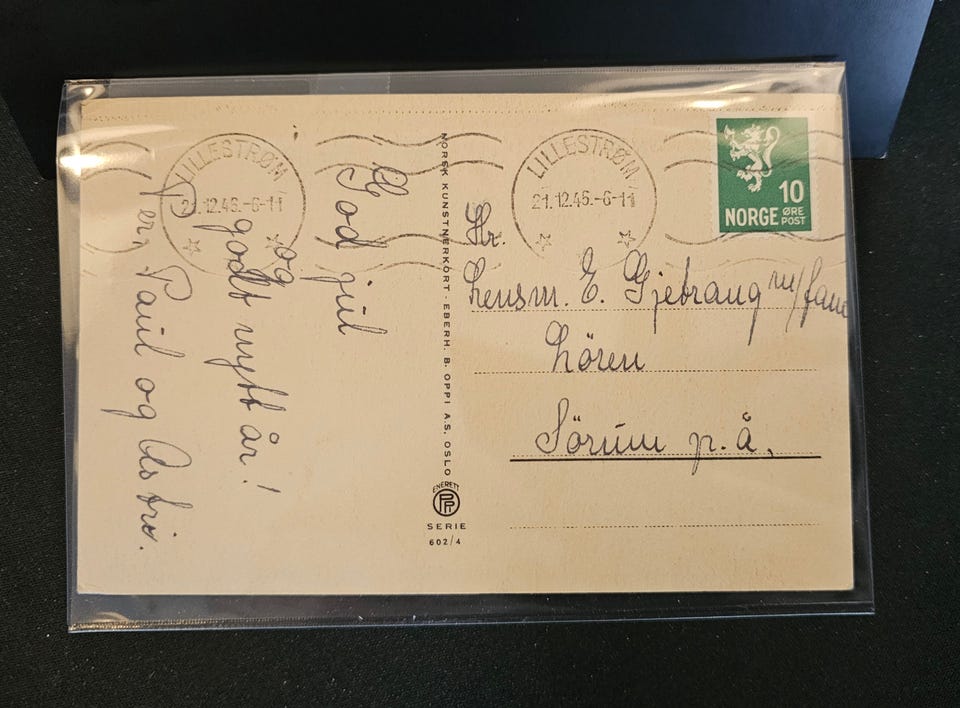 God jul
og
godt nytt år!
Per, Paul og Astri.
LILLESTRØM
21.12.46.-6-11
NORSK KUNSTNERKORT · EBERH. B. OPPI A.S. OSLO
ENERETT
SERIE
602/4
LILLESTRØM
21.12.46.-6-11
10
NORGE ØRE POST
Hr.
Lensm. E. Gjebrang m/fam
Lören
Sörum p. å.